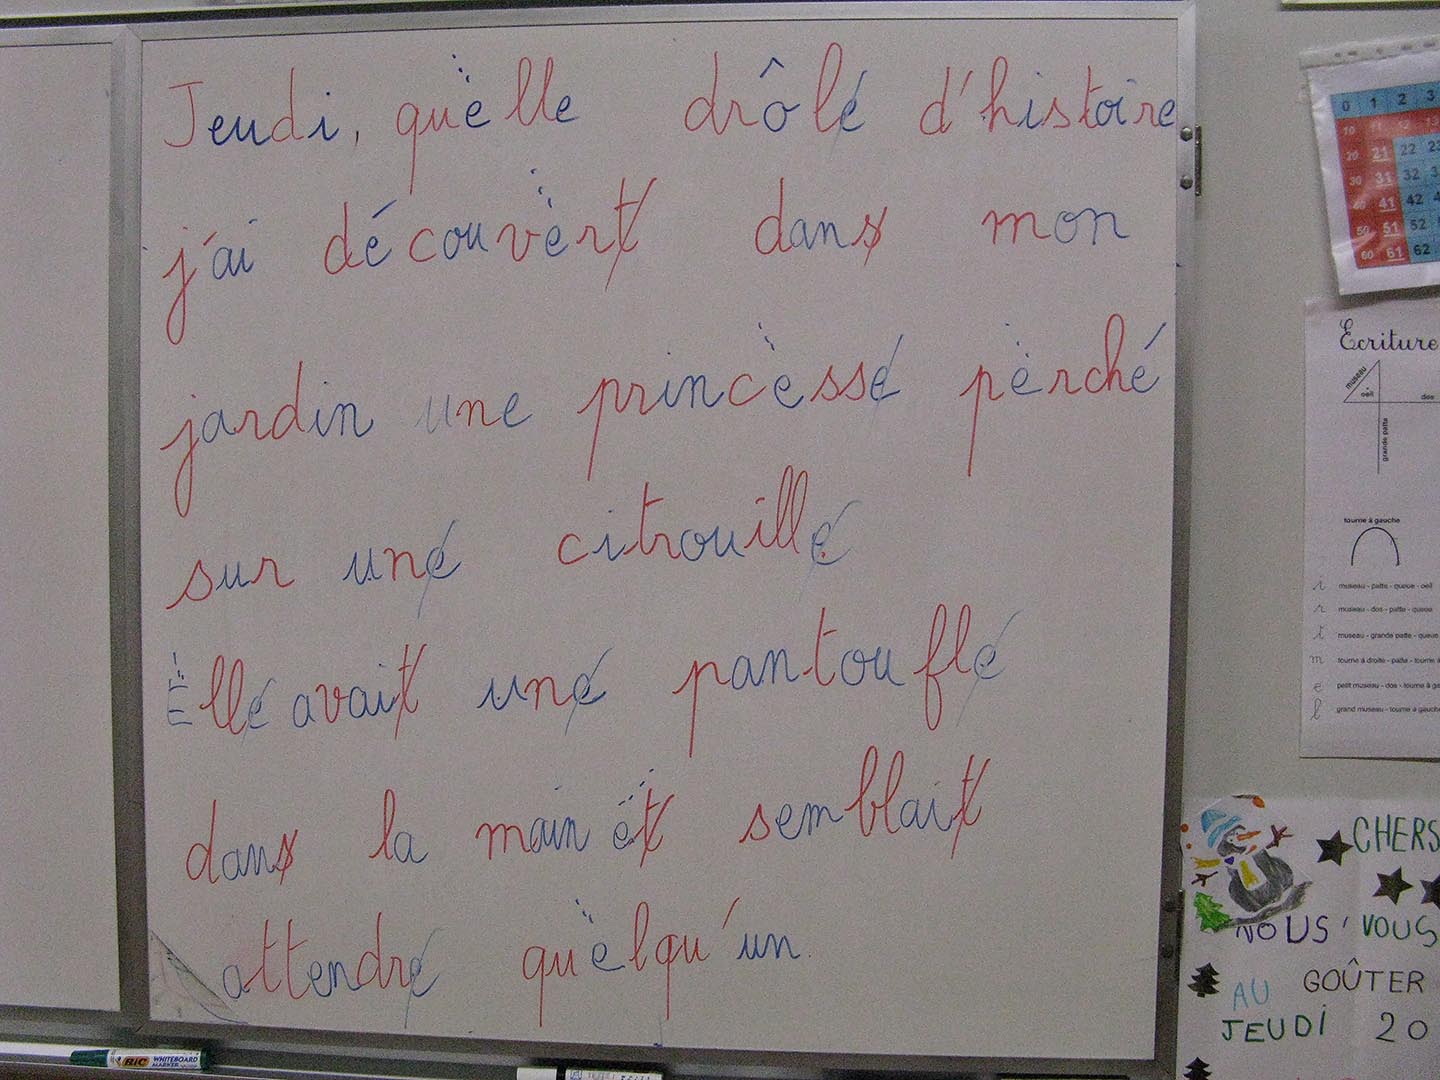 Jeudi, quelle drôle d'histoire
j'ai découvert dans mon
jardin une princesse perché
sur une citrouille
Elle avait une pantoufle
dans la main et semblait
attendre quelqu'un.
0 1 2 3
10 11 12 13
20 21 22 23
30 31 32
40 41 42
50 51 52
60 61 62
Ecriture
museau
oeil
dos
grande patte
tourne à gauche
i museau - patte - queue - oeil
r museau - dos - patte - queue
t museau - grande patte - queue
m tourne à droite - patte - tourne à
e petit museau - dos - tourne à ga
l grand museau - tourne à gauche
CHERS
NOUS VOUS
AU GOÛTER
JEUDI 20
BIC WHITEBOARD MARKER